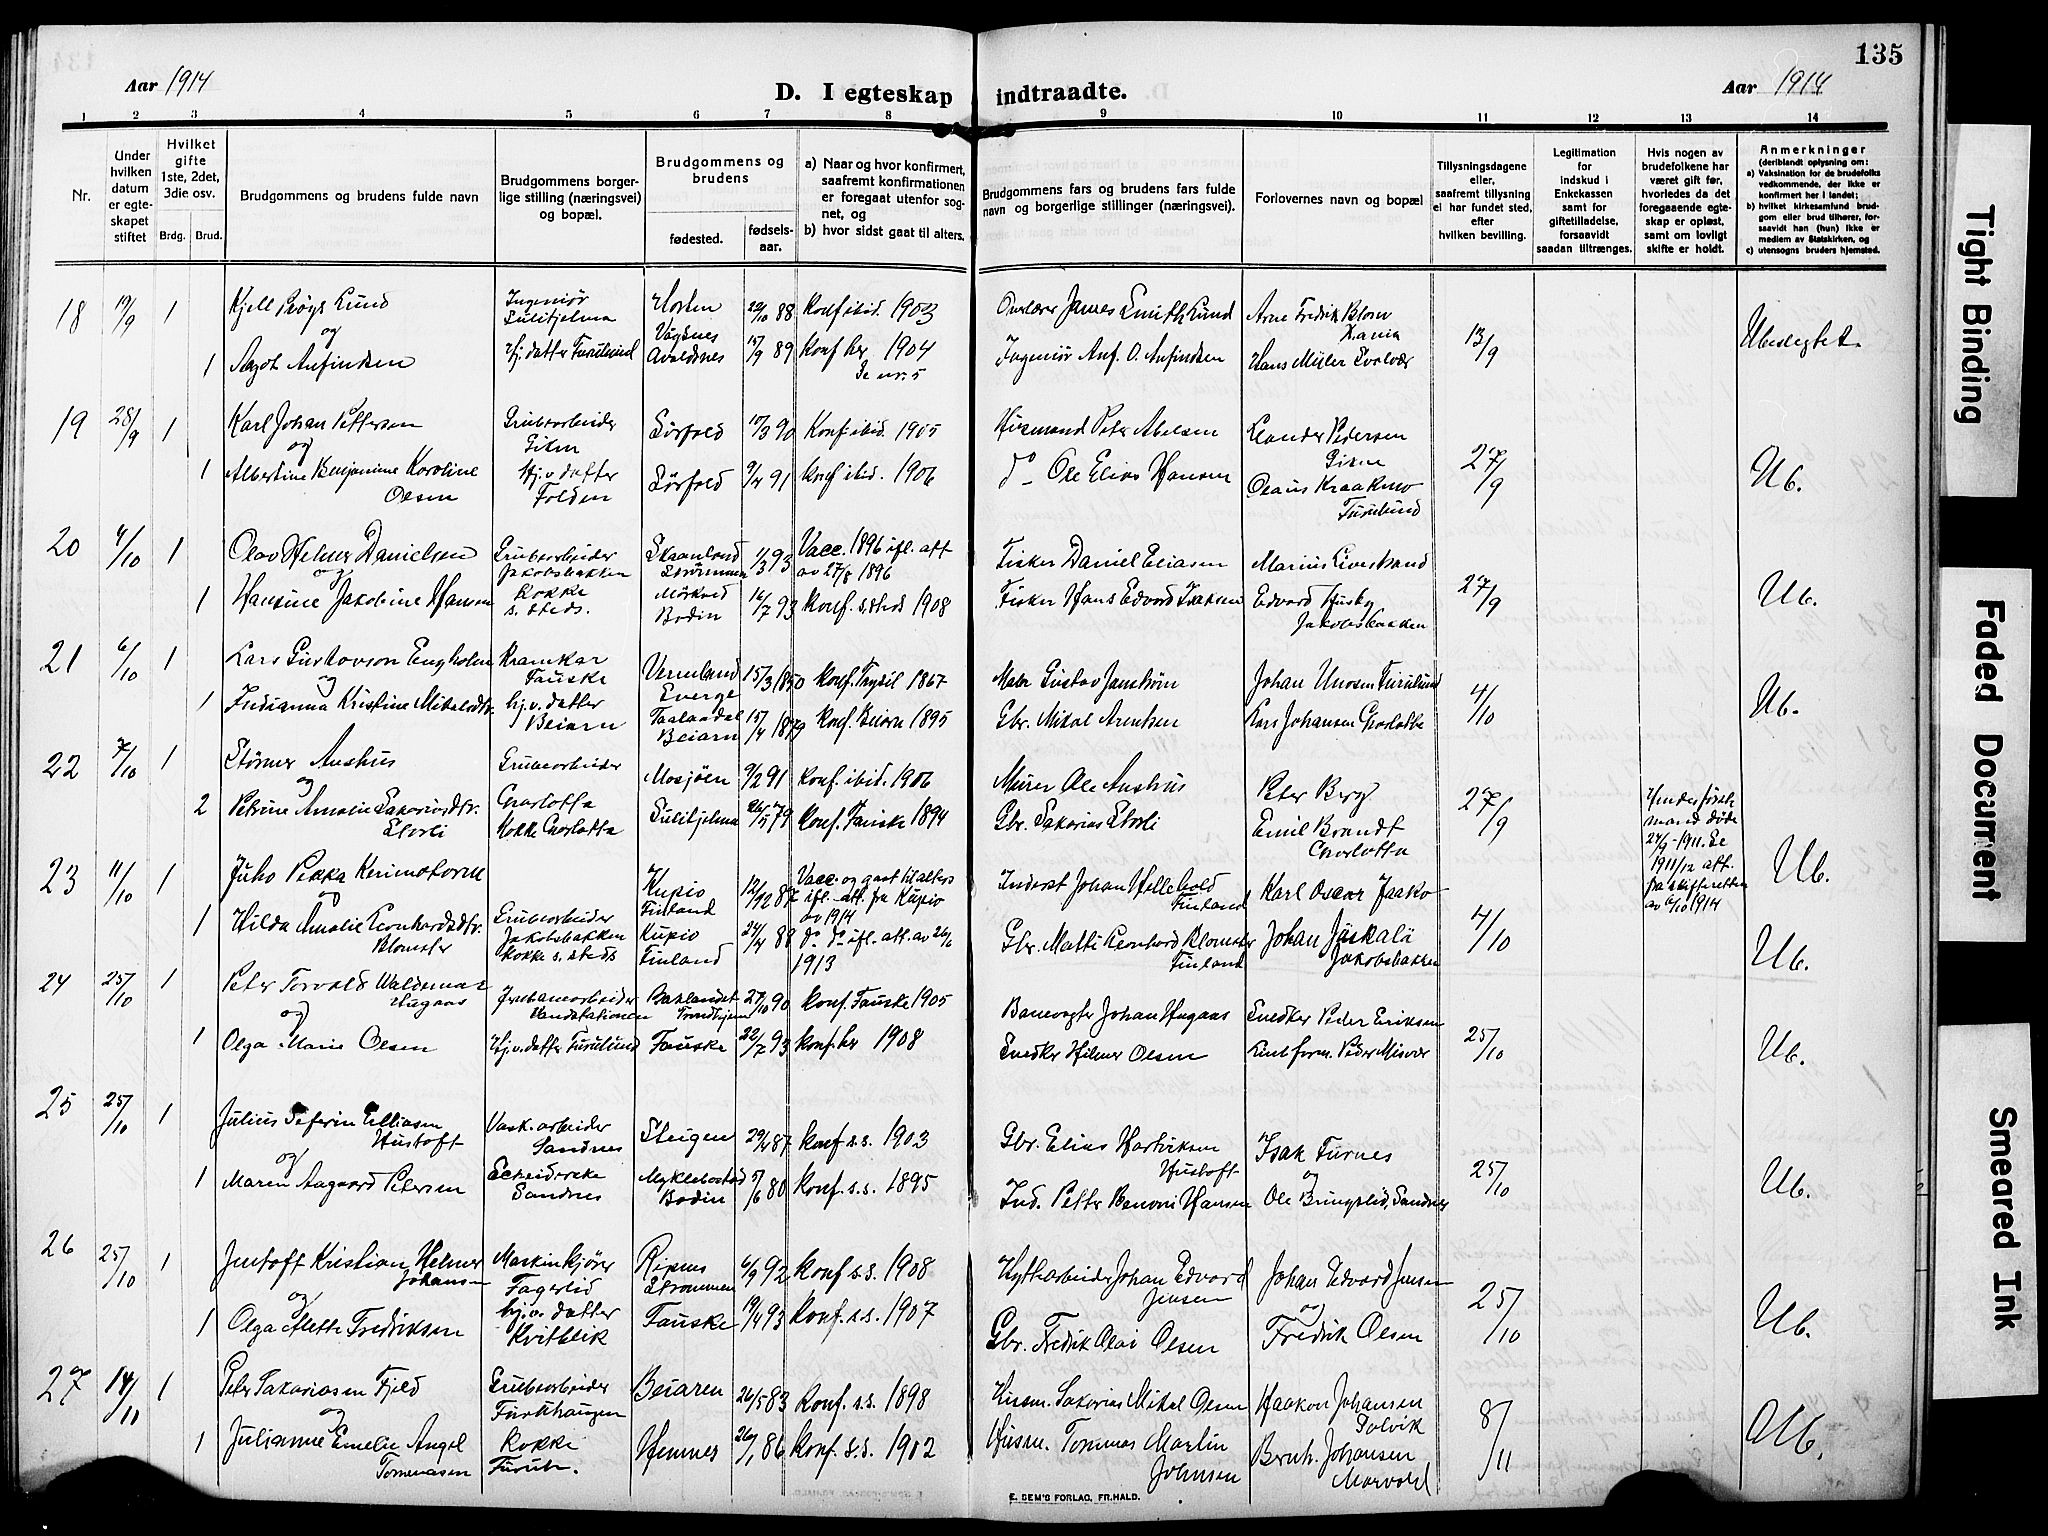 135
Aar 1914
D. I egteskap indtraadte.
Aar 1914
1 2 3 4 5 6 7 8 9 10 11 12 13 14
Nr.
Under hvilken datum er egteskapet stiftet
Hvilket gifte 1ste, 2det, 3die osv.
Brdg. Brud.
Brudgommens og brudens fulde navn
Brudgommens borgerlige stilling (næringsvei) og bopæl.
Brudgommens og brudens
fødested.
fødselsaar.
a) Naar og hvor konfirmert, saafremt konfirmationen er foregaat utenfor sognet, og
b) hvor sidst gaat til alters.
Brudgommens fars og brudens fars fulde navn og borgerlige stillinger (næringsvei).
Forlovernes navn og bopæl
Tillysningsdagene eller, saafremt tillysning ei har fundet sted, efter hvilken bevilling.
Legitimation for indskud i Enkekassen samt for giftetilladelse, forsaavidt saadan tiltrænges.
Hvis nogen av brudefolkene har været gift før, hvorledes da det foregaaende egteskap er opløst, samt om lovligt skifte er holdt.
Anmerkninger
(deriblandt oplysning om:
a) Vaksination for de brudefolks vedkommende, der ikke er konfirmert her i landet;
b) hvilket kirkesamfund brudgom eller brud tilhører, forsaavidt han (hun) ikke er medlem av Statskirken, og
c) utensogns bruders hjemsted.
18 19/9 1 Kjell Lund Ingeniør Sulitjelma Horten 22/10 88 Konf. ibid. 1903 Overlærer James Smith Lund Arne Fredrik Blom 13/9 Ubeslegtet.
og
1 Anfindsen Hj. datter Furulund Avaldsnes 15/9 89 Konf her 1904 Se nr. 5 Ingeniør Anf. O. Anfindsen Hans Svolvær
19 28/9 1 Karl Johan Pettersen Grubearbeider Giken Sörfold 10/3 90 Konf. ibid. 1905 Husmand Peter Abelsen Leander Pedersen Giken 27/9 Ub.
og
1 Albertine Benjamine Karoline Olsen Hj. v. datter Folden Sörfold 9/4 91 Konf ibid. 1906 do - Ole Elias Hansen Olaus Kraakmo Furulund
20 4/10 1 Olav Helmer Danielsen Grubearbeider Jakobsbakken Skaanland 1/3 93 Vacc. 1896 ifl. att av 27/8 1896 Fisker Daniel Eliasen Marius Livestrand 27/9 Ub.
og
1 Hansine Jakobine Hansen Kokke s. steds. Mörkved Bodin 16/7 93 Konf. s. steds 1908 Fisker Hans Edvard Isaksen Edvard Husby Jakobsbakken
21 6/10 1 Lars Gustavson Engholm Krankar Fauske Vermland Sverge 15/3 1850 Konf. Trysil 1867 Maler Gustav Janström Johan Unosen Furulund 4/10 Ub.
og
1 Indianna Kristine Mikalsdtr. hj. v. datter Beiarn Beiarn 15/4 1879 Konf Beiarn 1895 Gbr. Mikal Arentsen Lars Johansen Charlotta
22 7/10 1 Störmer Aushus Grubearbeider Charlotta Mosjöen 9/2 91 Konf. ibid. 1906 Murer Ole Aushus Peter Berg 27/9
og
2 Petrine Amalie Sakariasdtr. Storli Kokke Charlotta Sulitjelma 26/5 79 Konf. Fauske 1894 Gbr. Sakarias Storli Emil Brandt Charlotta
Hendes første mand døde 24/9-1911. Se 1911/12 att. fra skifteretten av 6/10 1914 Ub.
23 11/10 1 Juho Pekka Grubearbeider Jakobsbakken Kupio Finland 12/12 87 Vacc. og gaat til alters ifl. att. fra Kupio av 1914 Inderst Johan Finland Karl Oscar Jaako 4/10 Ub.
og
1 Hilda Amalie Leonhardsdtr. Blomster Kokke s. steds Kupio Finland 24/4 88 do do ifl. att. av 26/6 1913 Gbr. Matti Leonhard Blomster Finland Johan Jäskalä Jakobsbakken
24 25/10 1 Peter Torvald Waldemar Hugaas Jernbanearbeider Baklandet Trondhjem 27/10 90 Konf Fauske 1905 Banevogter Johan Hugaas Snedker Peder Eriksen 25/10 Ub.
og
1 Olga Marie Olsen Hj. v. datter Furulund Fauske 22/7 93 Konf. her 1908 Snedker Hilmer Olsen Peder Misvær
25 25/10 1 Julius Seferin Elliasen Hustoft Vask. arbeider Sandnes Steigen 29/4 87 Konf s.s. 1903 Gbr. Elias Hartviksen Hustoft Isak Furnes 25/10 Ub.
og
1 Maren Aagaard Petersen Sandnes Myklebostad Bodin 5/6 80 Konf. s.s. 1895 Ind. Petter Benoni Hansen og Ole Bringslid, Sandnes
26 25/10 1 Jentoft Kristian Helmer Johansen Maskinkjører Fagerlid Strommen 6/9 92 Konf s.s. 1908 Hyttearbeider Johan Edvard Jensen Johan Edvard Jensen 25/10 Ub.
og
1 Olga Alette Fredriksen hj. v. datter Kvitblik Fauske 19/4 93 Konf. s.s. 1907 Gbr. Fredrik Olai Olsen og Fredrik Olsen
27 14/11 1 Peter Sakariassen Fjeld Grubearbeider Furuhaugen Beiaren 26/5 83 Konf. s.s. 1898 Husm. Sakarias Mikal Olsen Haakon Johansen Solvik 8/11 Ub.
og
1 Julianne Emelie Angel Tommasen Kokke Furuh. Hemnes 26/1 86 Konf. s.s. 1902 Husm. Tommas Martin Johnsen Bernh. Johansen Morvold
E. SEM'S FORLAG, FR.HALD.
Tight Binding
Faded Document
Smeared Ink